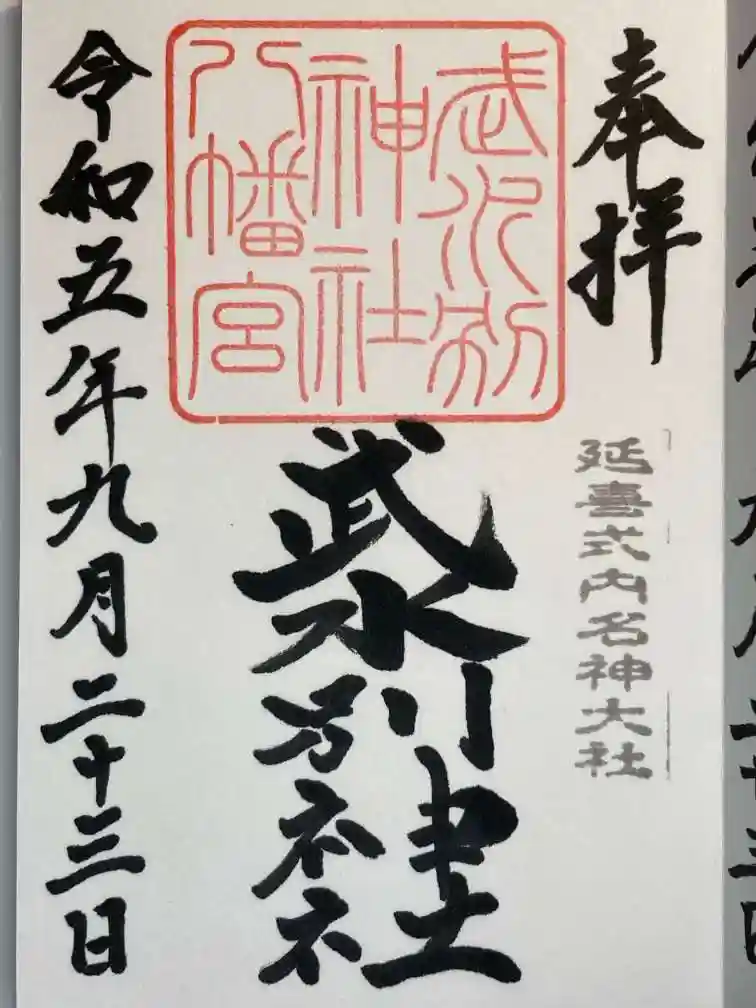 奉拝
延喜式内名神大社
武水別
神社
八幡宮
武水別神社
令和五年九月二十三日